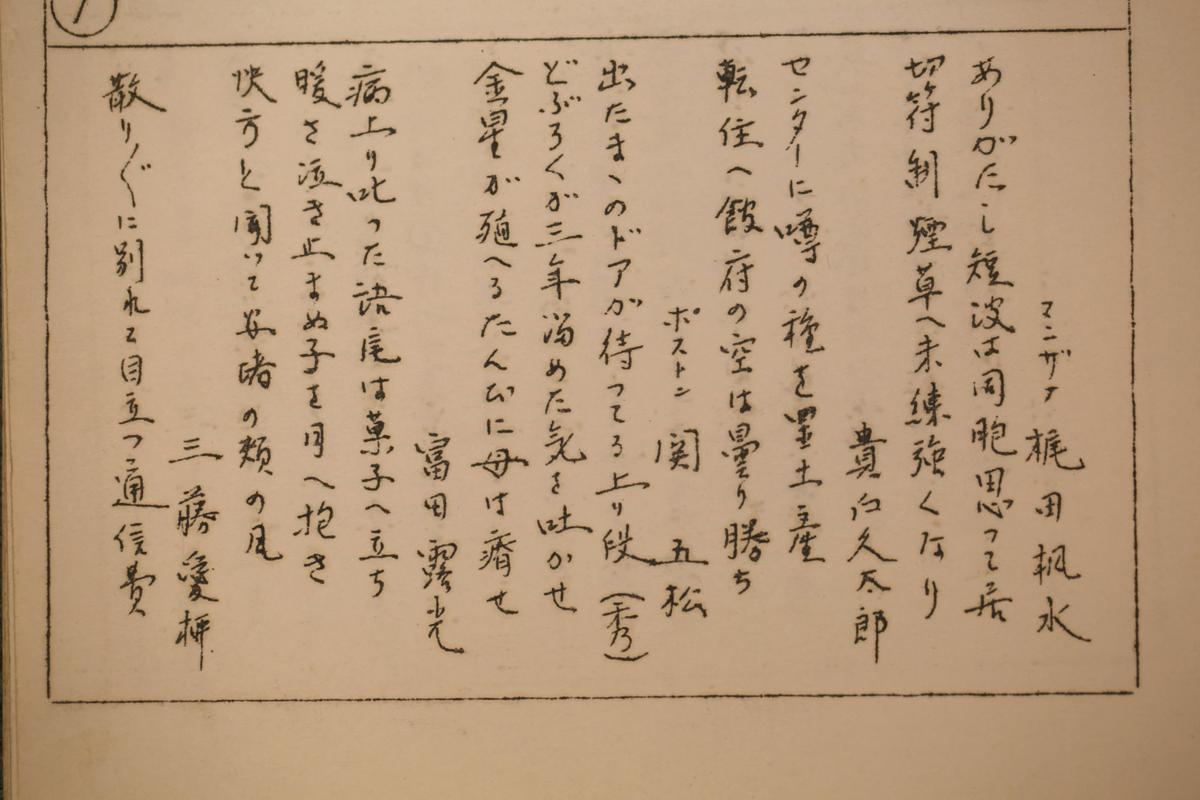 マンザナ 梶田楓水
ありがたし短波は同胞思って居
切符制煙草へ未練強くなり
貴石久太郎
センターに噂の種を置土産
転住へ館府の空は曇り勝ち
ポストン 関 五松
出たまゝのドアが待ってる上り段(秀)
どぶろくが三年溜めた気を吐かせ
金星が殖へるたんびに母は瘠せ
富田露光
病上り叱った語尾は菓子へ立ち
暖き泣き止まぬ子を月へ抱き
快方と聞いて安堵の頬の風
三藤愛柳
散り〲に別れて目立つ通信費